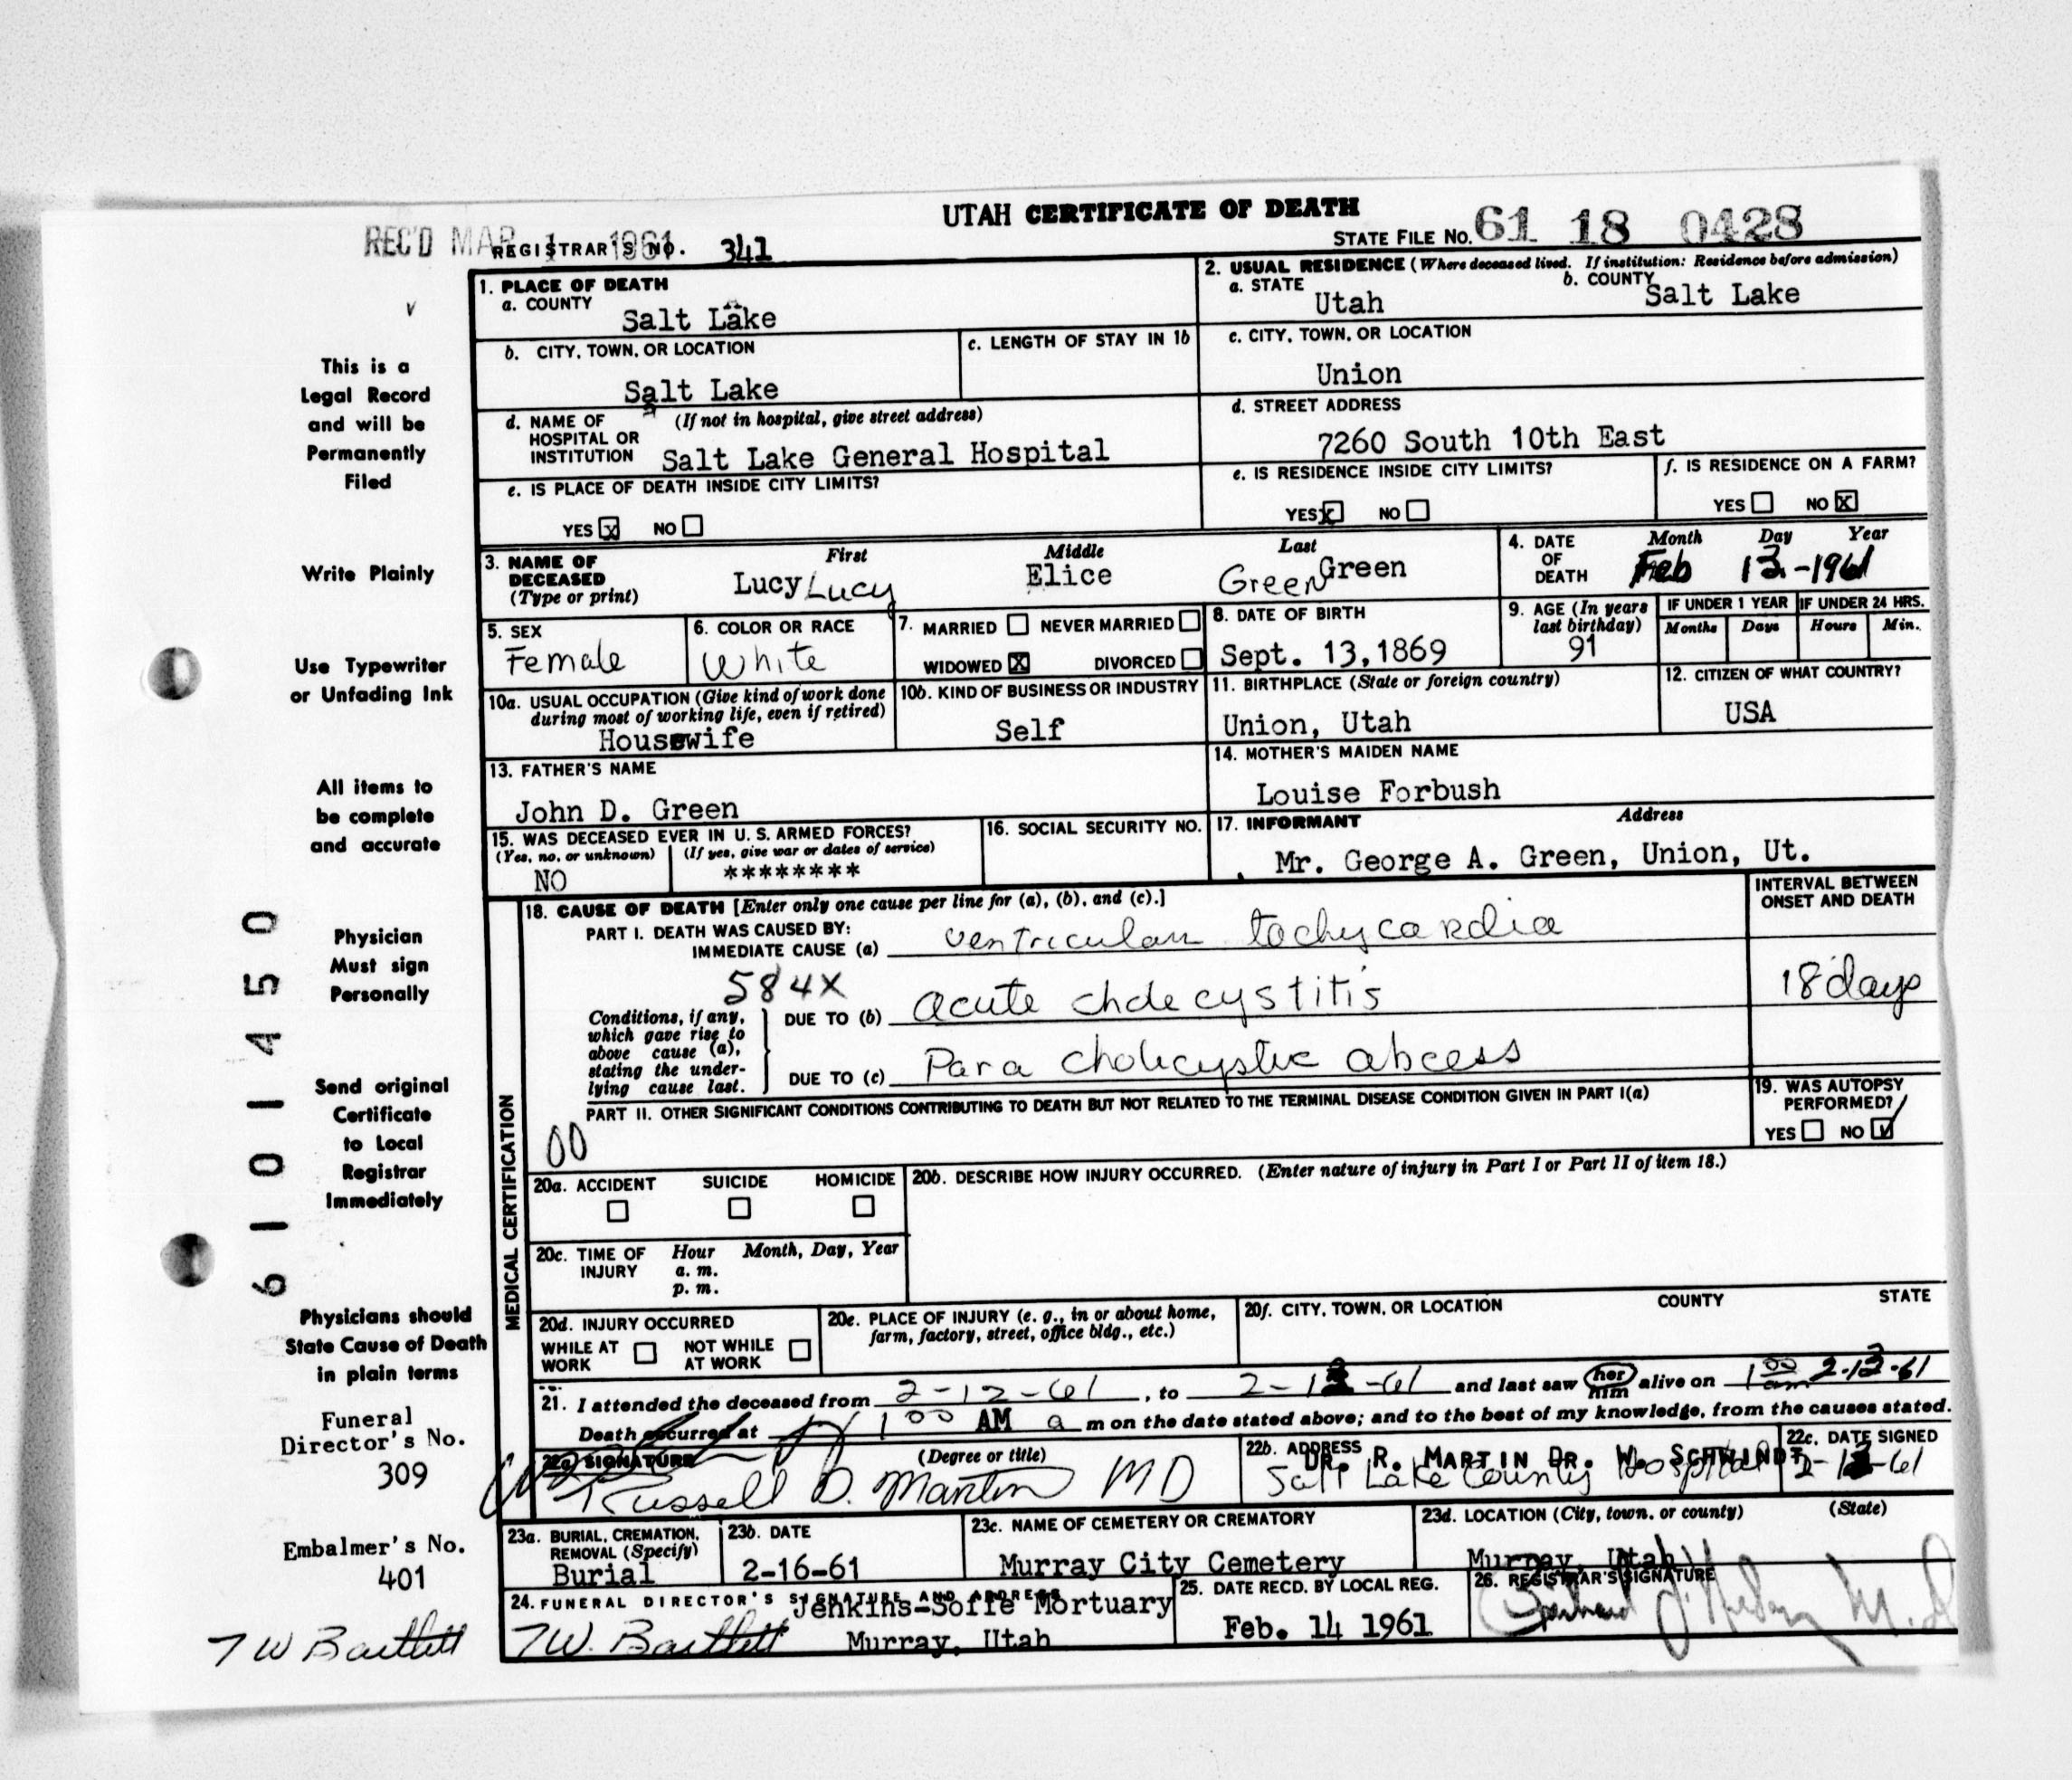 UTAH CERTIFICATE OF DEATH
REC'D MAR 1 1961
REGISTRAR'S NO. 341
STATE FILE NO. 61 18 0428
1. PLACE OF DEATH
a. COUNTY
Salt Lake
2. USUAL RESIDENCE (Where deceased lived. If institution: Residence before admission)
a. STATE
Utah
b. COUNTY
Salt Lake
b. CITY, TOWN, OR LOCATION
Salt Lake
c. LENGTH OF STAY IN 1b
c. CITY, TOWN, OR LOCATION
Union
d. NAME OF HOSPITAL OR INSTITUTION
(If not in hospital, give street address)
Salt Lake General Hospital
d. STREET ADDRESS
7260 South 10th East
e. IS PLACE OF DEATH INSIDE CITY LIMITS?
YES x NO
e. IS RESIDENCE INSIDE CITY LIMITS?
YES x NO
f. IS RESIDENCE ON A FARM?
YES NO X
3. NAME OF DECEASED (Type or print)
First Middle Last
Lucy Lucy Elice Green Green
4. DATE OF DEATH
Month Day Year
Feb 13-1961
5. SEX
Female
6. COLOR OR RACE
White
7. MARRIED NEVER MARRIED
WIDOWED X DIVORCED
8. DATE OF BIRTH
Sept. 13,1869
9. AGE (In years last birthday)
91
IF UNDER 1 YEAR
Months Days
IF UNDER 24 HRS.
Hours Min.
10a. USUAL OCCUPATION (Give kind of work done during most of working life, even if retired)
Housewife
10b. KIND OF BUSINESS OR INDUSTRY
Self
11. BIRTHPLACE (State or foreign country)
Union, Utah
12. CITIZEN OF WHAT COUNTRY?
USA
13. FATHER'S NAME
John D. Green
14. MOTHER'S MAIDEN NAME
Louise Forbush
15. WAS DECEASED EVER IN U. S. ARMED FORCES?
(Yes, no, or unknown) (If yes, give war or dates of service)
NO ********
16. SOCIAL SECURITY NO.
17. INFORMANT Address
Mr. George A. Green, Union, Ut.
MEDICAL CERTIFICATION
18. CAUSE OF DEATH [Enter only one cause per line for (a), (b), and (c).]
INTERVAL BETWEEN ONSET AND DEATH
PART I. DEATH WAS CAUSED BY:
IMMEDIATE CAUSE (a) ventricular tachycardia
584X
Conditions, if any, which gave rise to above cause (a), stating the underlying cause last.
DUE TO (b) acute cholecystitis
18 days
DUE TO (c) Para cholecystic abcess
PART II. OTHER SIGNIFICANT CONDITIONS CONTRIBUTING TO DEATH BUT NOT RELATED TO THE TERMINAL DISEASE CONDITION GIVEN IN PART I(a)
00
19. WAS AUTOPSY PERFORMED?
YES NO
20a. ACCIDENT SUICIDE HOMICIDE
20b. DESCRIBE HOW INJURY OCCURRED. (Enter nature of injury in Part I or Part II of item 18.)
20c. TIME OF INJURY
Hour Month, Day, Year
a. m.
p. m.
20d. INJURY OCCURRED
WHILE AT WORK NOT WHILE AT WORK
20e. PLACE OF INJURY (e. g., in or about home, farm, factory, street, office bldg., etc.)
20f. CITY, TOWN, OR LOCATION COUNTY STATE
21. I attended the deceased from 2-12-61, to 2-13-61 and last saw her him alive on 1 00 am 2-13-61
Death occurred at 1 00 AM a m on the date stated above; and to the best of my knowledge, from the causes stated.
22a. SIGNATURE (Degree or title)
Russell D. Martin MD
22b. ADDRESS
DR. R. MARTIN DR. W. SCHWINDT
Salt Lake County Hospital
22c. DATE SIGNED
2-13-61
23a. BURIAL, CREMATION, REMOVAL (Specify)
Burial
23b. DATE
2-16-61
23c. NAME OF CEMETERY OR CREMATORY
Murray City Cemetery
23d. LOCATION (City, town, or county) (State)
Murray, Utah
24. FUNERAL DIRECTOR'S SIGNATURE AND ADDRESS
Jenkins-Soffe Mortuary
TW. Bartlett Murray, Utah
25. DATE RECD. BY LOCAL REG.
Feb. 14 1961
26. REGISTRAR'S SIGNATURE
M. D
This is a
Legal Record
and will be
Permanently
Filed
Write Plainly
Use Typewriter
or Unfading Ink
All items to
be complete
and accurate
Physician
Must sign
Personally
Send original
Certificate
to Local
Registrar
Immediately
Physicians should
State Cause of Death
in plain terms
Funeral
Director's No.
309
Embalmer's No.
401
TW Bartlett
6101450